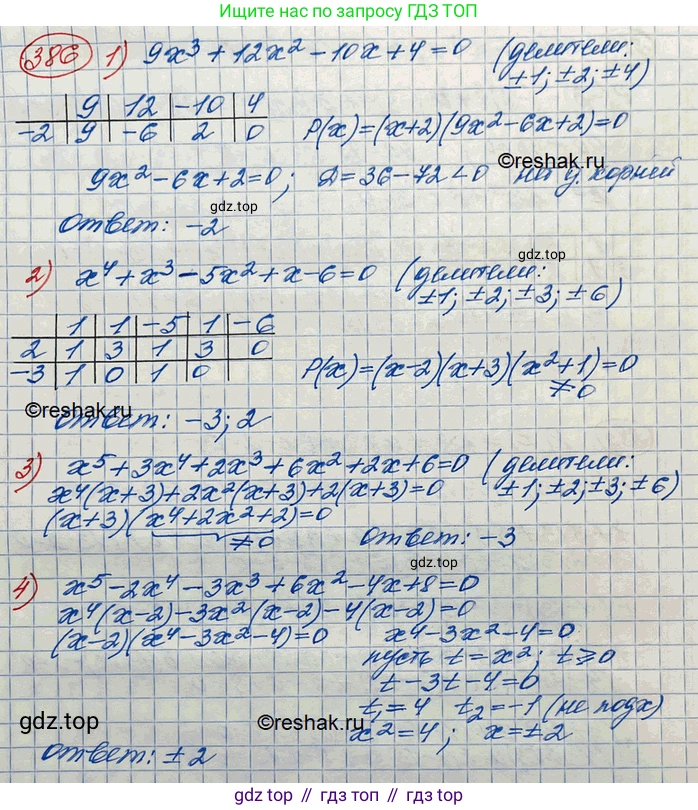 Ищите нас по запросу ГДЗ ТОП
386 1) 9x³ + 12x² - 10x + 4 = 0 (делители:
±1; ±2; ±4)
9 | 12 | -10 | 4
-2 | 9 | -6 | 2 | 0
P(x) = (x+2)(9x² - 6x + 2) = 0
©reshak.ru
9x² - 6x + 2 = 0; Д = 36 - 72 < 0 корней
gdz.top
Ответ: -2
gdz.top
2) x⁴ + x³ - 5x² + x - 6 = 0 (делители:
±1; ±2; ±3; ±6)
1 | 1 | -5 | 1 | -6
2 | 1 | 3 | 1 | 3 | 0
-3 | 1 | 0 | 1 | 0
P(x) = (x-2)(x+3)(x²+1) = 0
≠0
©reshak.ru
Ответ: -3; 2
3) x⁵ + 3x⁴ + 2x³ + 6x² + 2x + 6 = 0 (делители:
±1; ±2; ±3; ±6)
x⁴(x+3) + 2x²(x+3) + 2(x+3) = 0
(x+3)(x⁴ + 2x² + 2) = 0
≠0
Ответ: -3
gdz.top
4) x⁵ - 2x⁴ - 3x³ + 6x² - 4x + 8 = 0
x⁴(x-2) - 3x²(x-2) - 4(x-2) = 0
(x-2)(x⁴ - 3x² - 4) = 0
x⁴ - 3x² - 4 = 0
пусть t = x²; t ⩾ 0
t - 3t - 4 = 0
t₁ = 4 t₂ = -1 (не подх)
x² = 4; x = ±2
gdz.top
©reshak.ru
Ответ: ±2
gdz.top
Больше решений вы найдёте на сайте gdz.top